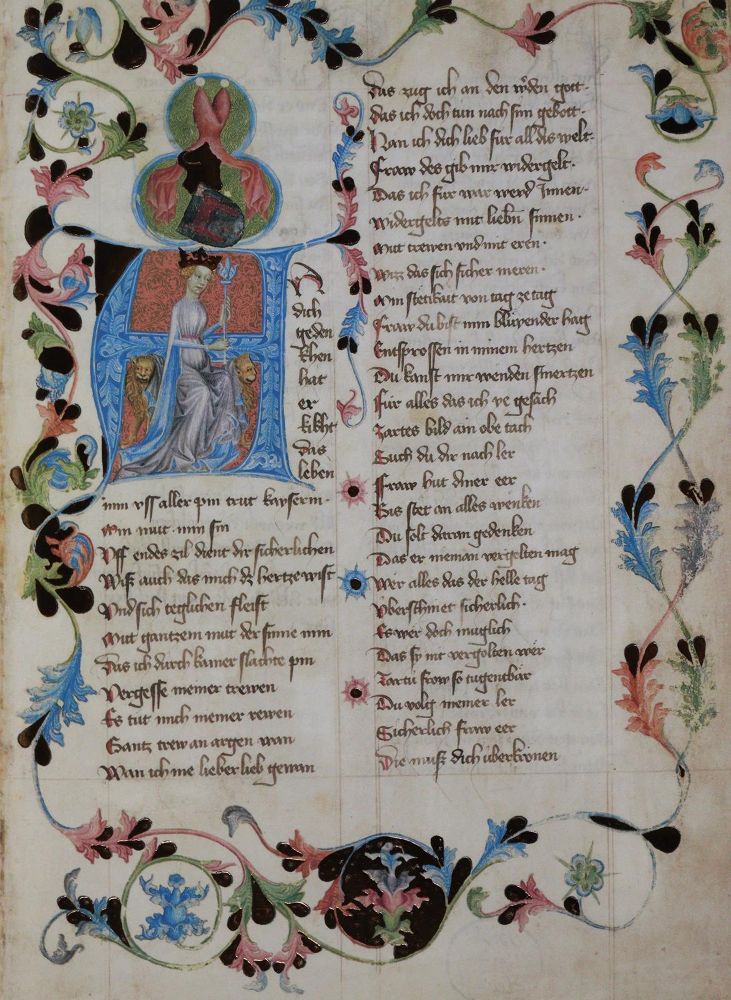 A
N
dich
geden
khen
hat
er
kikht
das
leben
min uss aller pin trut kayserin
Min mut · min sin
Uff endes zil dient dir sicherlichen
Wiss auch das mich dz hertze wist
Und sich teglichen fleist
Mit gantzem mut der sinne min
Das ich durch kainer slachte pin
Vergesse meiner trewen
Es tut mich niemer rewen
Gantz trew an argen wan
Wan ich nie lieber lieb gewan
Das zug ich an den werden gott ·
das ich doch tun nach sim gebott ·
Han ich dich lieb fur all dis welt ·
Fraw des gib mir widergelt ·
Das ich fur war werd Innen ·
Widergelts mit liebn sinnen ·
Mit trewen und mit eren ·
Wiss das sich sicher meren ·
Min stetikait von tag ze tag
Fraw du bist min blüyender hag
Entsprossen in minem hertzen
Du kanst mir wenden smertzen
Für alles das ich ye gesach
Zartes bild ain obe tach
Such du dir nach ler
Fraw hut diner eer
Bis stet an alles wenken
Du solt daran gedenken
Das er nieman vergelten mag
Wer alles das der helle tag
Uberschinet sicherlich ·
Es wer doch muglich
Das sy nit vergolten wer
Zartu frow so tugentbär
Du volg meiner ler
Sicherlich fraw eer
Die muss dich überkrönen